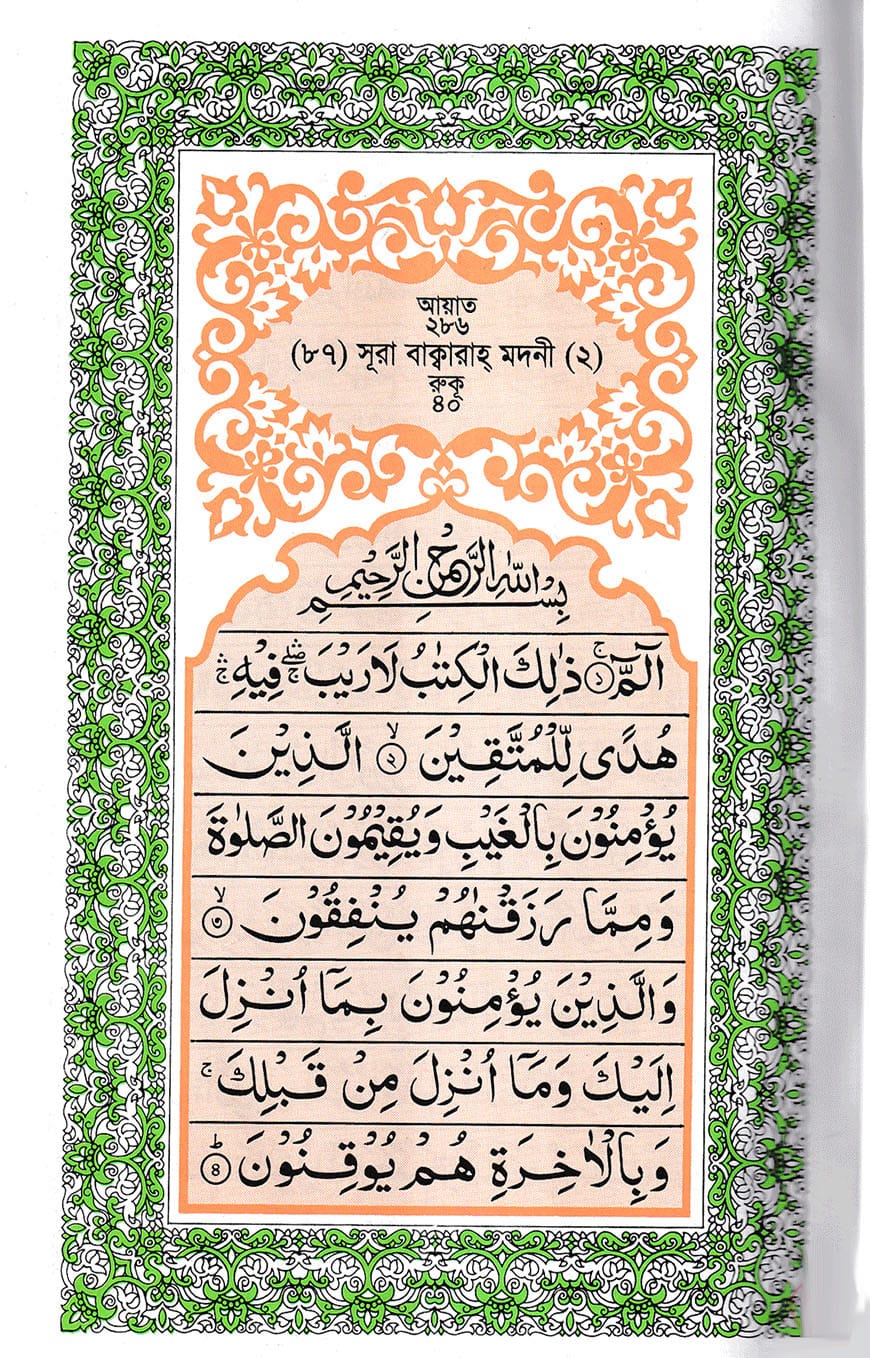 আয়াত
২৮৬
(৮৭) সূরা বাক্বারাহ্ মদনী (২)
রুকূ
৪০
بِسْمِ اللّٰهِ الرَّحْمٰنِ الرَّحِيْمِ
الٓمّٓ ۚ ﴿১﴾ ذٰلِكَ الْكِتٰبُ لَا رَيْبَ ۛۖۚ فِيْهِ ۛۚ
هُدًى لِّلْمُتَّقِيْنَ ۙ ﴿২﴾ الَّذِيْنَ
يُؤْمِنُوْنَ بِالْغَيْبِ وَيُقِيْمُوْنَ الصَّلٰوةَ
وَمِمَّا رَزَقْنٰهُمْ يُنْفِقُوْنَ ۙ ﴿৩﴾
وَالَّذِيْنَ يُؤْمِنُوْنَ بِمَآ اُنْزِلَ
اِلَيْكَ وَمَآ اُنْزِلَ مِنْ قَبْلِكَ ۚ
وَبِالْاٰخِرَةِ هُمْ يُوْقِنُوْنَ ؕ ﴿৪﴾